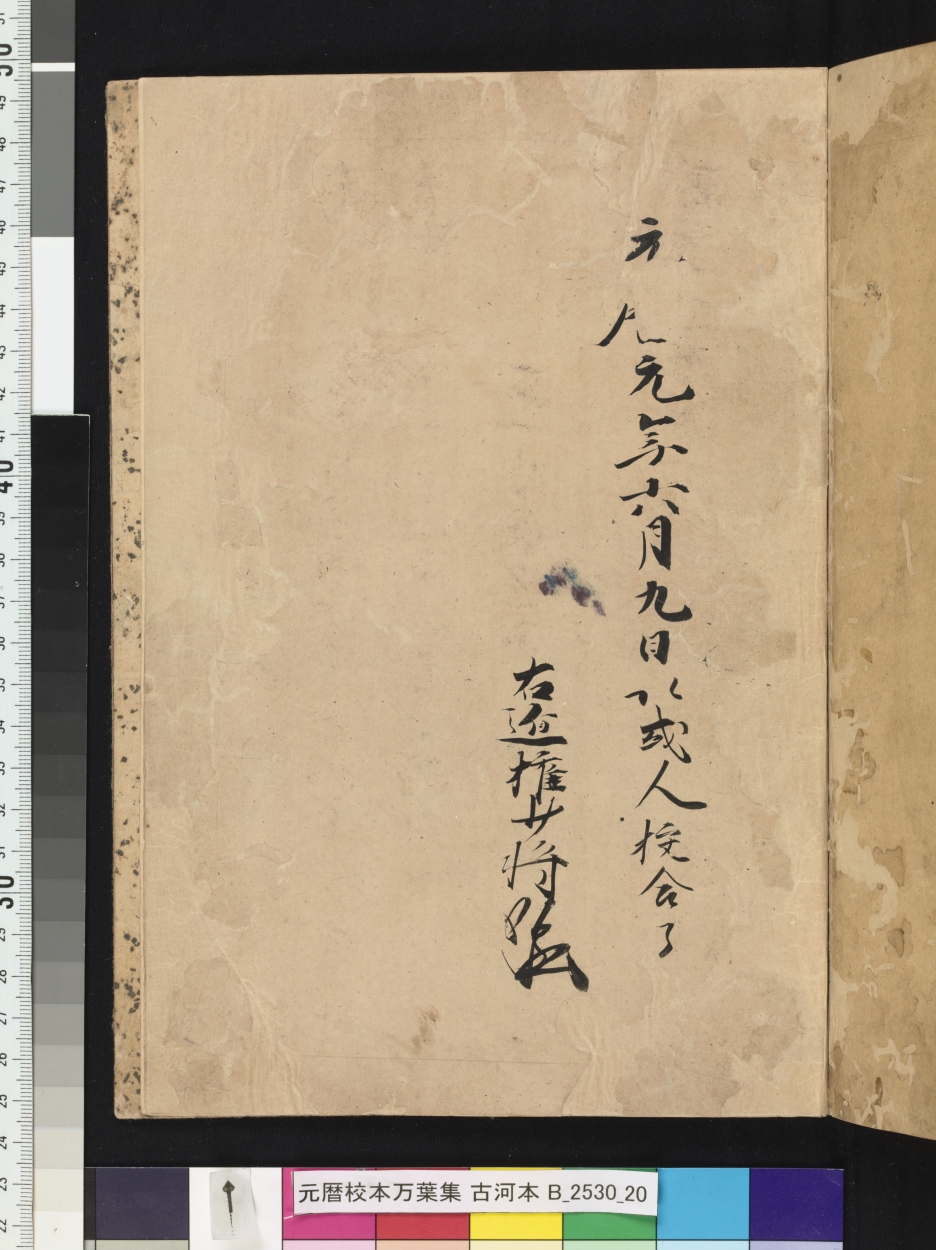 元暦元年六月九日以或人校合了
右近権少将
元暦校本万葉集 古河本 B_2530_20
50
40
30